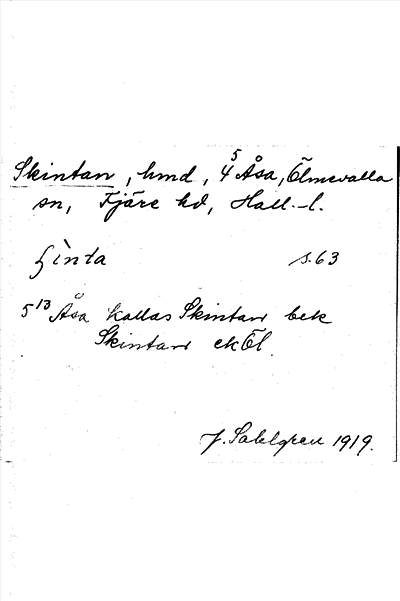 Skintan, hmd, 4⁵ Åsa, Ölmevalla
sn, Fjäre hd, Hall.-l.
ʃìnta s. 63
5¹³ Åsa kallas Skintan bek
Skintan ekÖl.
J. Sahlgren 1919.